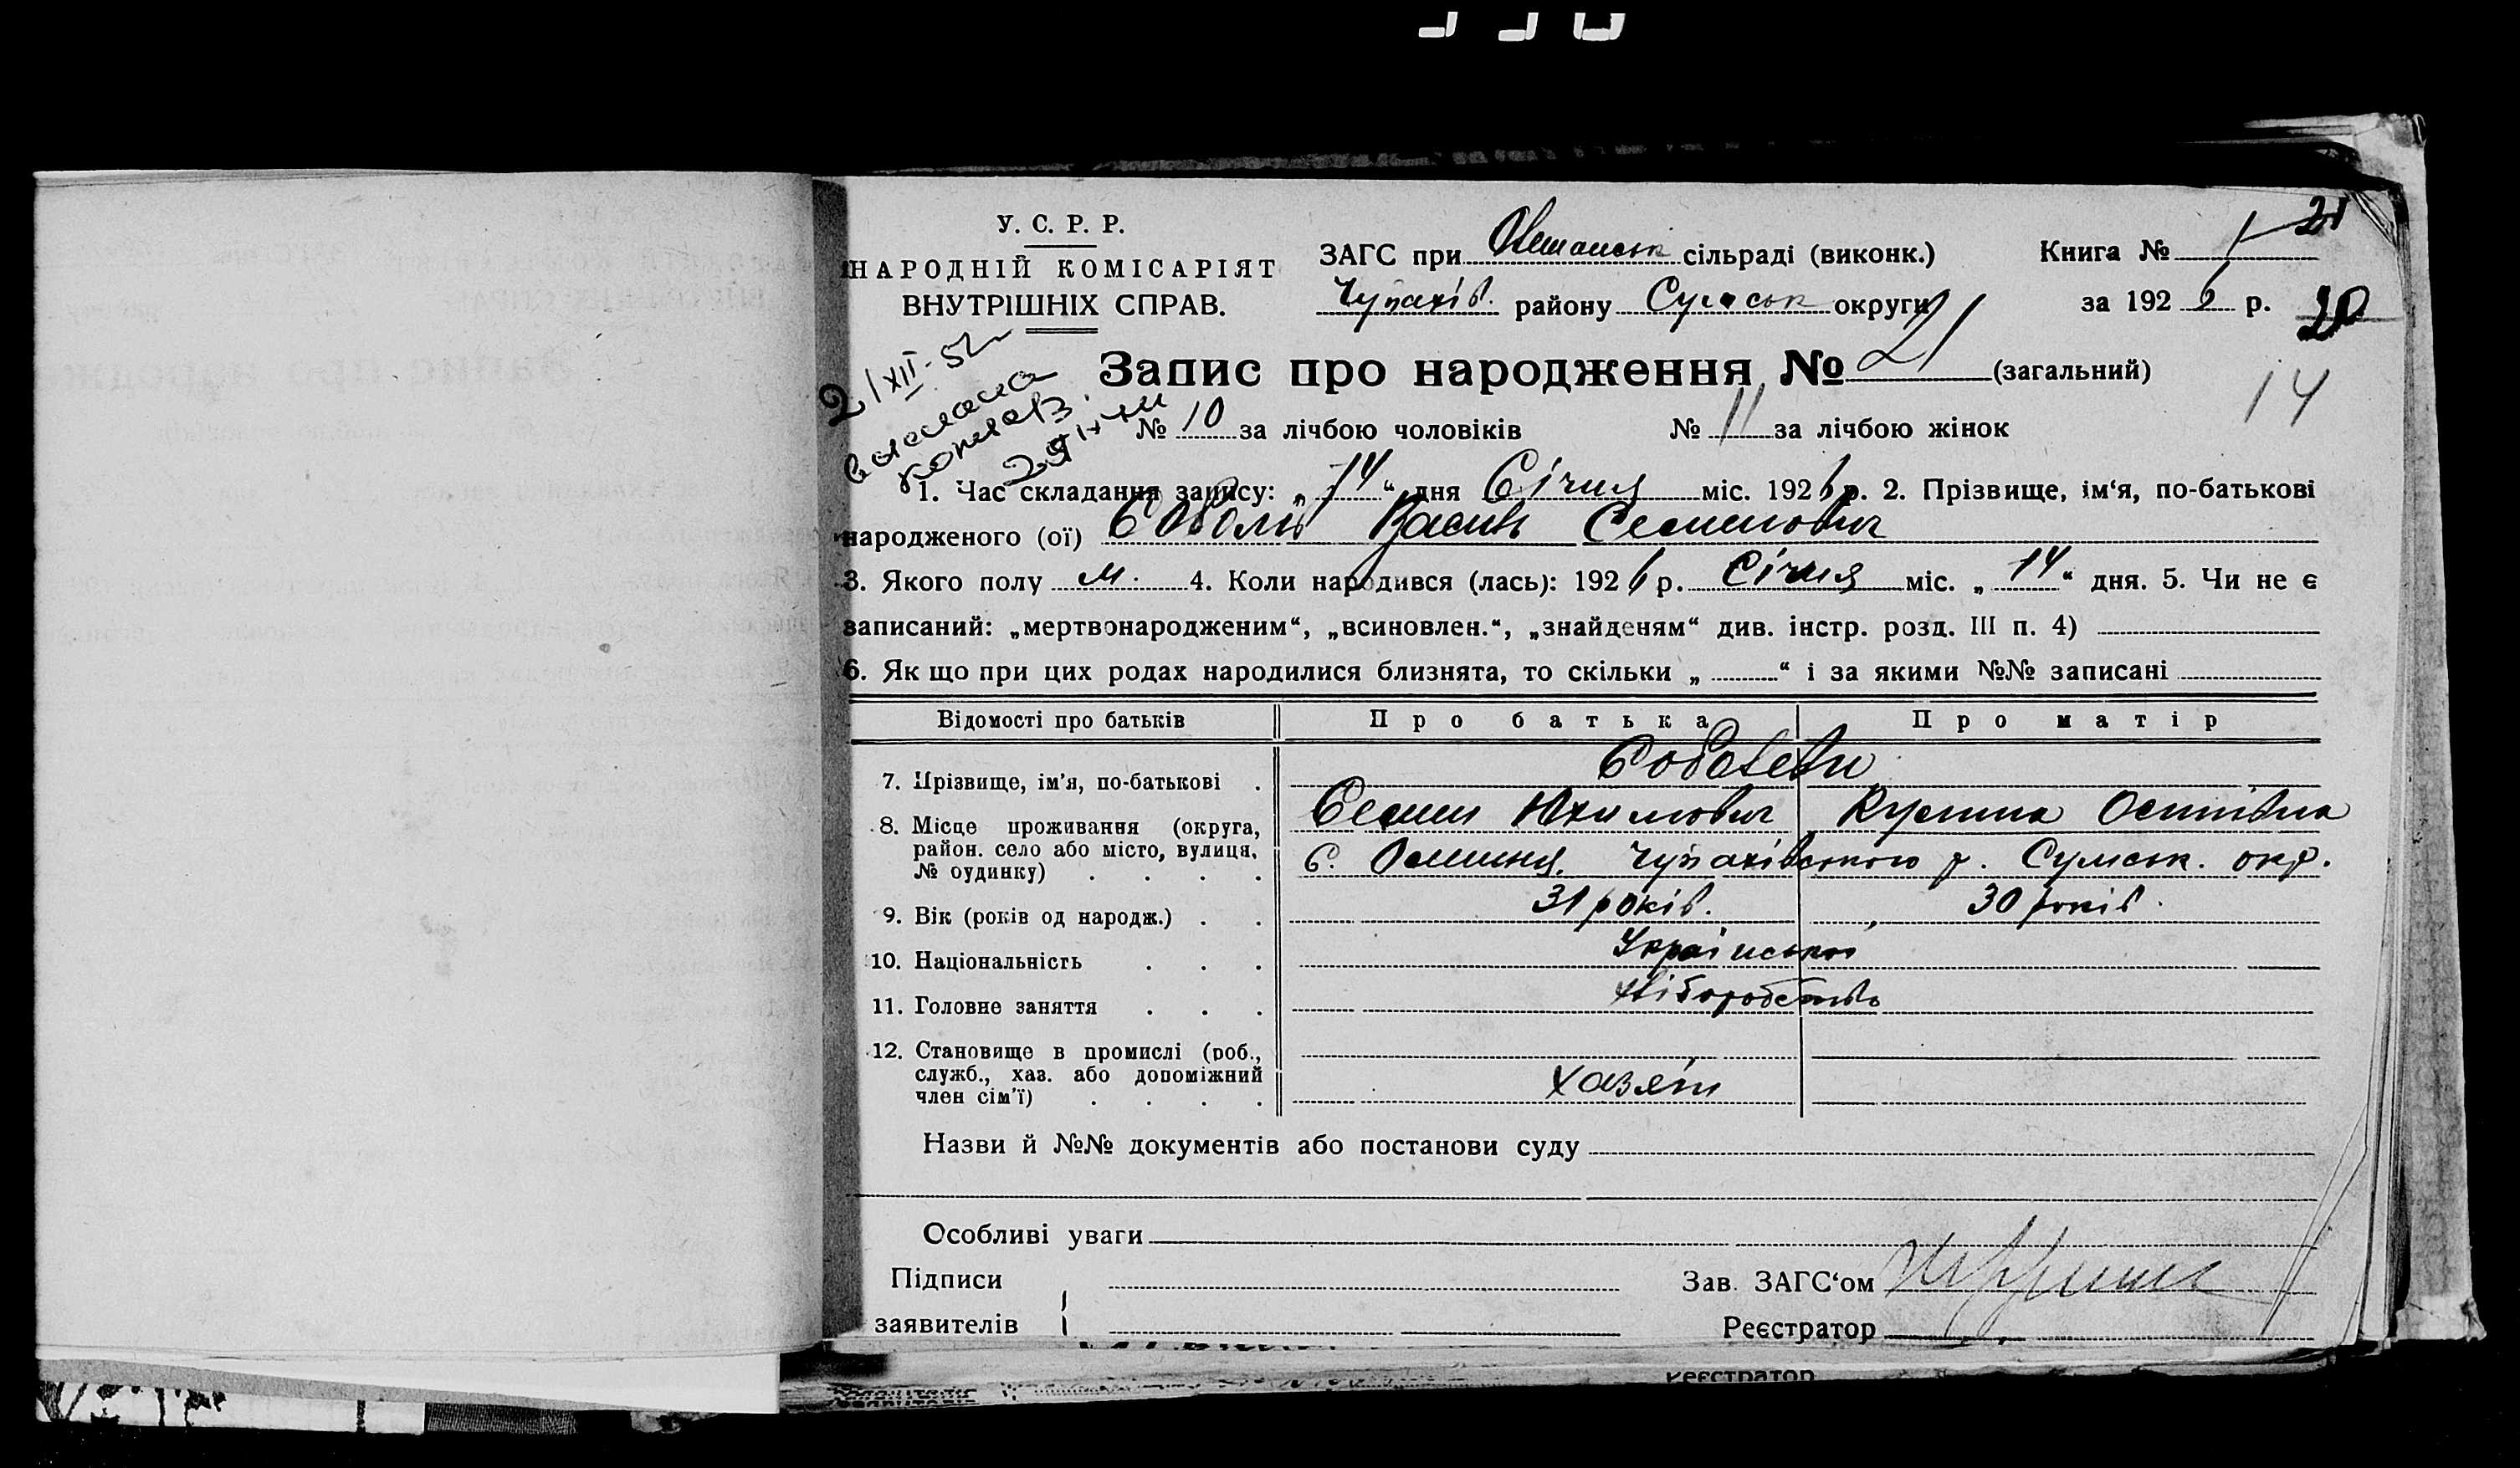 21
У. С. Р. Р.
НАРОДНІЙ КОМІСАРІЯТ
ВНУТРІШНІХ СПРАВ.
ЗАГС при сільраді (виконк.)
Книга № 1
Чупахів. району Сумськ округи
за 1926 р.
20
2/XII-52
Запис про народження № 21 (загальний)
14
№ 10 за лічбою чоловіків № 11 за лічбою жінок
1. Час складання запису: „14“ дня Січня міс. 1926 р. 2. Прізвище, ім‘я, по-батькові
народженого (ої) Соболів Василь Семенович
3. Якого полу м. 4. Коли народився (лась): 1926 р. Січня міс. „14“ дня. 5. Чи не є
записаний: „мертвонародженим“, „всиновлен.“, „знайденям“ див. інстр. розд. III п. 4)
6. Як що при цих родах народилися близнята, то скільки „ “ і за якими №№ записані
Відомості про батьків Про батька Про матір
7. Прізвище, ім’я, по-батькові . Соболеви
Семен Юхимович
8. Місце проживання (округа,
район. село або місто, вулиця,
№ будинку) . . . . с. Чупахівського р. Сумськ. окр.
9. Вік (років од народж.) . . 31 років. 30 років.
10. Національність . . . Української
11. Головне заняття . . . Хліборобство
12. Становище в промислі (роб.,
служб., хаз. або допоміжний
член сім’ї) . . . . хазяїн
Назви й №№ документів або постанови суду
Особливі уваги
Підписи
заявителів
Зав. ЗАГС‘ом
Реєстратор
Реєстратор